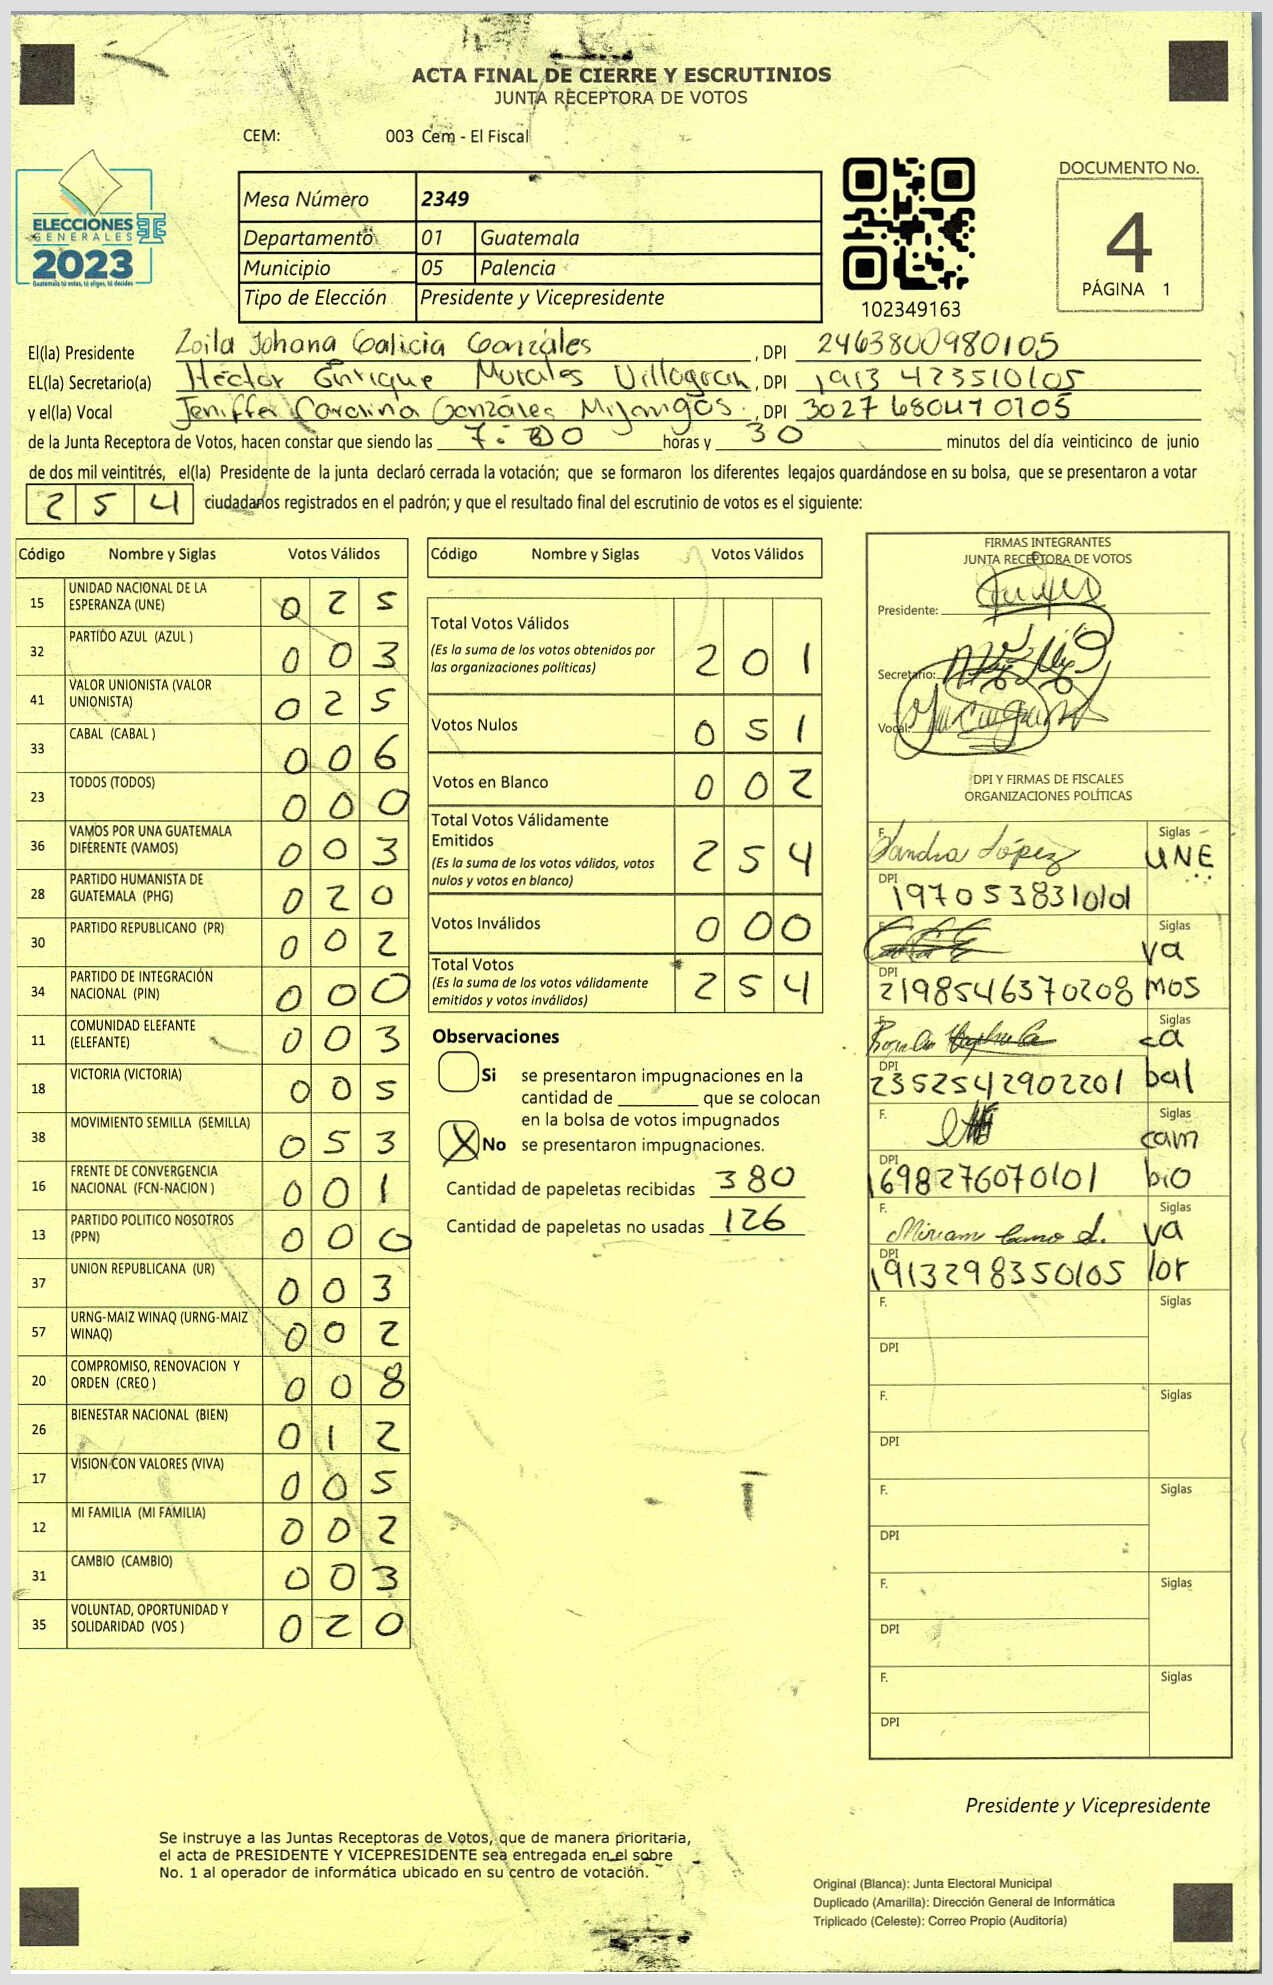 ACTA FINAL DE CIERRE Y ESCRUTINIOS
JUNTA RECEPTORA DE VOTOS
CEM: 003 Cem - El Fiscal
ELECCIONES
GENERALES
2023
Guatemala tú votas, tú eliges, tú decides
Mesa Número 2349
Departamento 01 Guatemala
Municipio 05 Palencia
Tipo de Elección Presidente y Vicepresidente
102349163
DOCUMENTO No.
4
PÁGINA 1
El(la) Presidente Zoila Johana Galicia Gonzáles, DPI 2463800980105
EL(la) Secretario(a) Héctor Enrique Morales Villagran, DPI 1913 423510105
y el(la) Vocal Jeniffer Carolina Gonzáles Mijangos, DPI 3027 680470105
de la Junta Receptora de Votos, hacen constar que siendo las 7: horas y 30 minutos del día veinticinco de junio
de dos mil veintitrés, el(la) Presidente de la junta declaró cerrada la votación; que se formaron los diferentes legajos guardándose en su bolsa, que se presentaron a votar
254 ciudadanos registrados en el padrón; y que el resultado final del escrutinio de votos es el siguiente:
Código Nombre y Siglas Votos Válidos
15 UNIDAD NACIONAL DE LA ESPERANZA (UNE) 025
32 PARTIDO AZUL (AZUL ) 003
41 VALOR UNIONISTA (VALOR UNIONISTA) 025
33 CABAL (CABAL ) 006
23 TODOS (TODOS) 000
36 VAMOS POR UNA GUATEMALA DIFERENTE (VAMOS) 003
28 PARTIDO HUMANISTA DE GUATEMALA (PHG) 020
30 PARTIDO REPUBLICANO (PR) 002
34 PARTIDO DE INTEGRACIÓN NACIONAL (PIN) 000
11 COMUNIDAD ELEFANTE (ELEFANTE) 003
18 VICTORIA (VICTORIA) 005
38 MOVIMIENTO SEMILLA (SEMILLA) 053
16 FRENTE DE CONVERGENCIA NACIONAL (FCN-NACION ) 001
13 PARTIDO POLITICO NOSOTROS (PPN) 000
37 UNION REPUBLICANA (UR) 003
57 URNG-MAIZ WINAQ (URNG-MAIZ WINAQ) 002
20 COMPROMISO, RENOVACION Y ORDEN (CREO ) 008
26 BIENESTAR NACIONAL (BIEN) 012
17 VISION CON VALORES (VIVA) 005
12 MI FAMILIA (MI FAMILIA) 002
31 CAMBIO (CAMBIO) 003
35 VOLUNTAD, OPORTUNIDAD Y SOLIDARIDAD (VOS ) 020
Código Nombre y Siglas Votos Válidos
Total Votos Válidos
(Es la suma de los votos obtenidos por las organizaciones políticas) 201
Votos Nulos 051
Votos en Blanco 002
Total Votos Válidamente Emitidos
(Es la suma de los votos válidos, votos nulos y votos en blanco) 254
Votos Inválidos 000
Total Votos
(Es la suma de los votos válidamente emitidos y votos inválidos) 254
Observaciones
Si se presentaron impugnaciones en la
cantidad de ________ que se colocan
en la bolsa de votos impugnados
X No se presentaron impugnaciones.
Cantidad de papeletas recibidas 380
Cantidad de papeletas no usadas 126
FIRMAS INTEGRANTES
JUNTA RECEPTORA DE VOTOS
Presidente:
Secretario:
Vocal:
DPI Y FIRMAS DE FISCALES
ORGANIZACIONES POLÍTICAS
F. Sandra López Siglas UNE
DPI 1970538310101
F. Siglas vamos
DPI 2198546370208
F. Siglas cabal
DPI 2352542902201
F. Siglas cambio
DPI 1698276070101
F. Miriam Siglas valor
DPI 1913298350105
F. Siglas
DPI
F. Siglas
DPI
F. Siglas
DPI
F. Siglas
DPI
F. Siglas
DPI
Presidente y Vicepresidente
Se instruye a las Juntas Receptoras de Votos, que de manera prioritaria,
el acta de PRESIDENTE Y VICEPRESIDENTE sea entregada en el sobre
No. 1 al operador de informática ubicado en su centro de votación.
Original (Blanca): Junta Electoral Municipal
Duplicado (Amarilla): Dirección General de Informática
Triplicado (Celeste): Correo Propio (Auditoría)